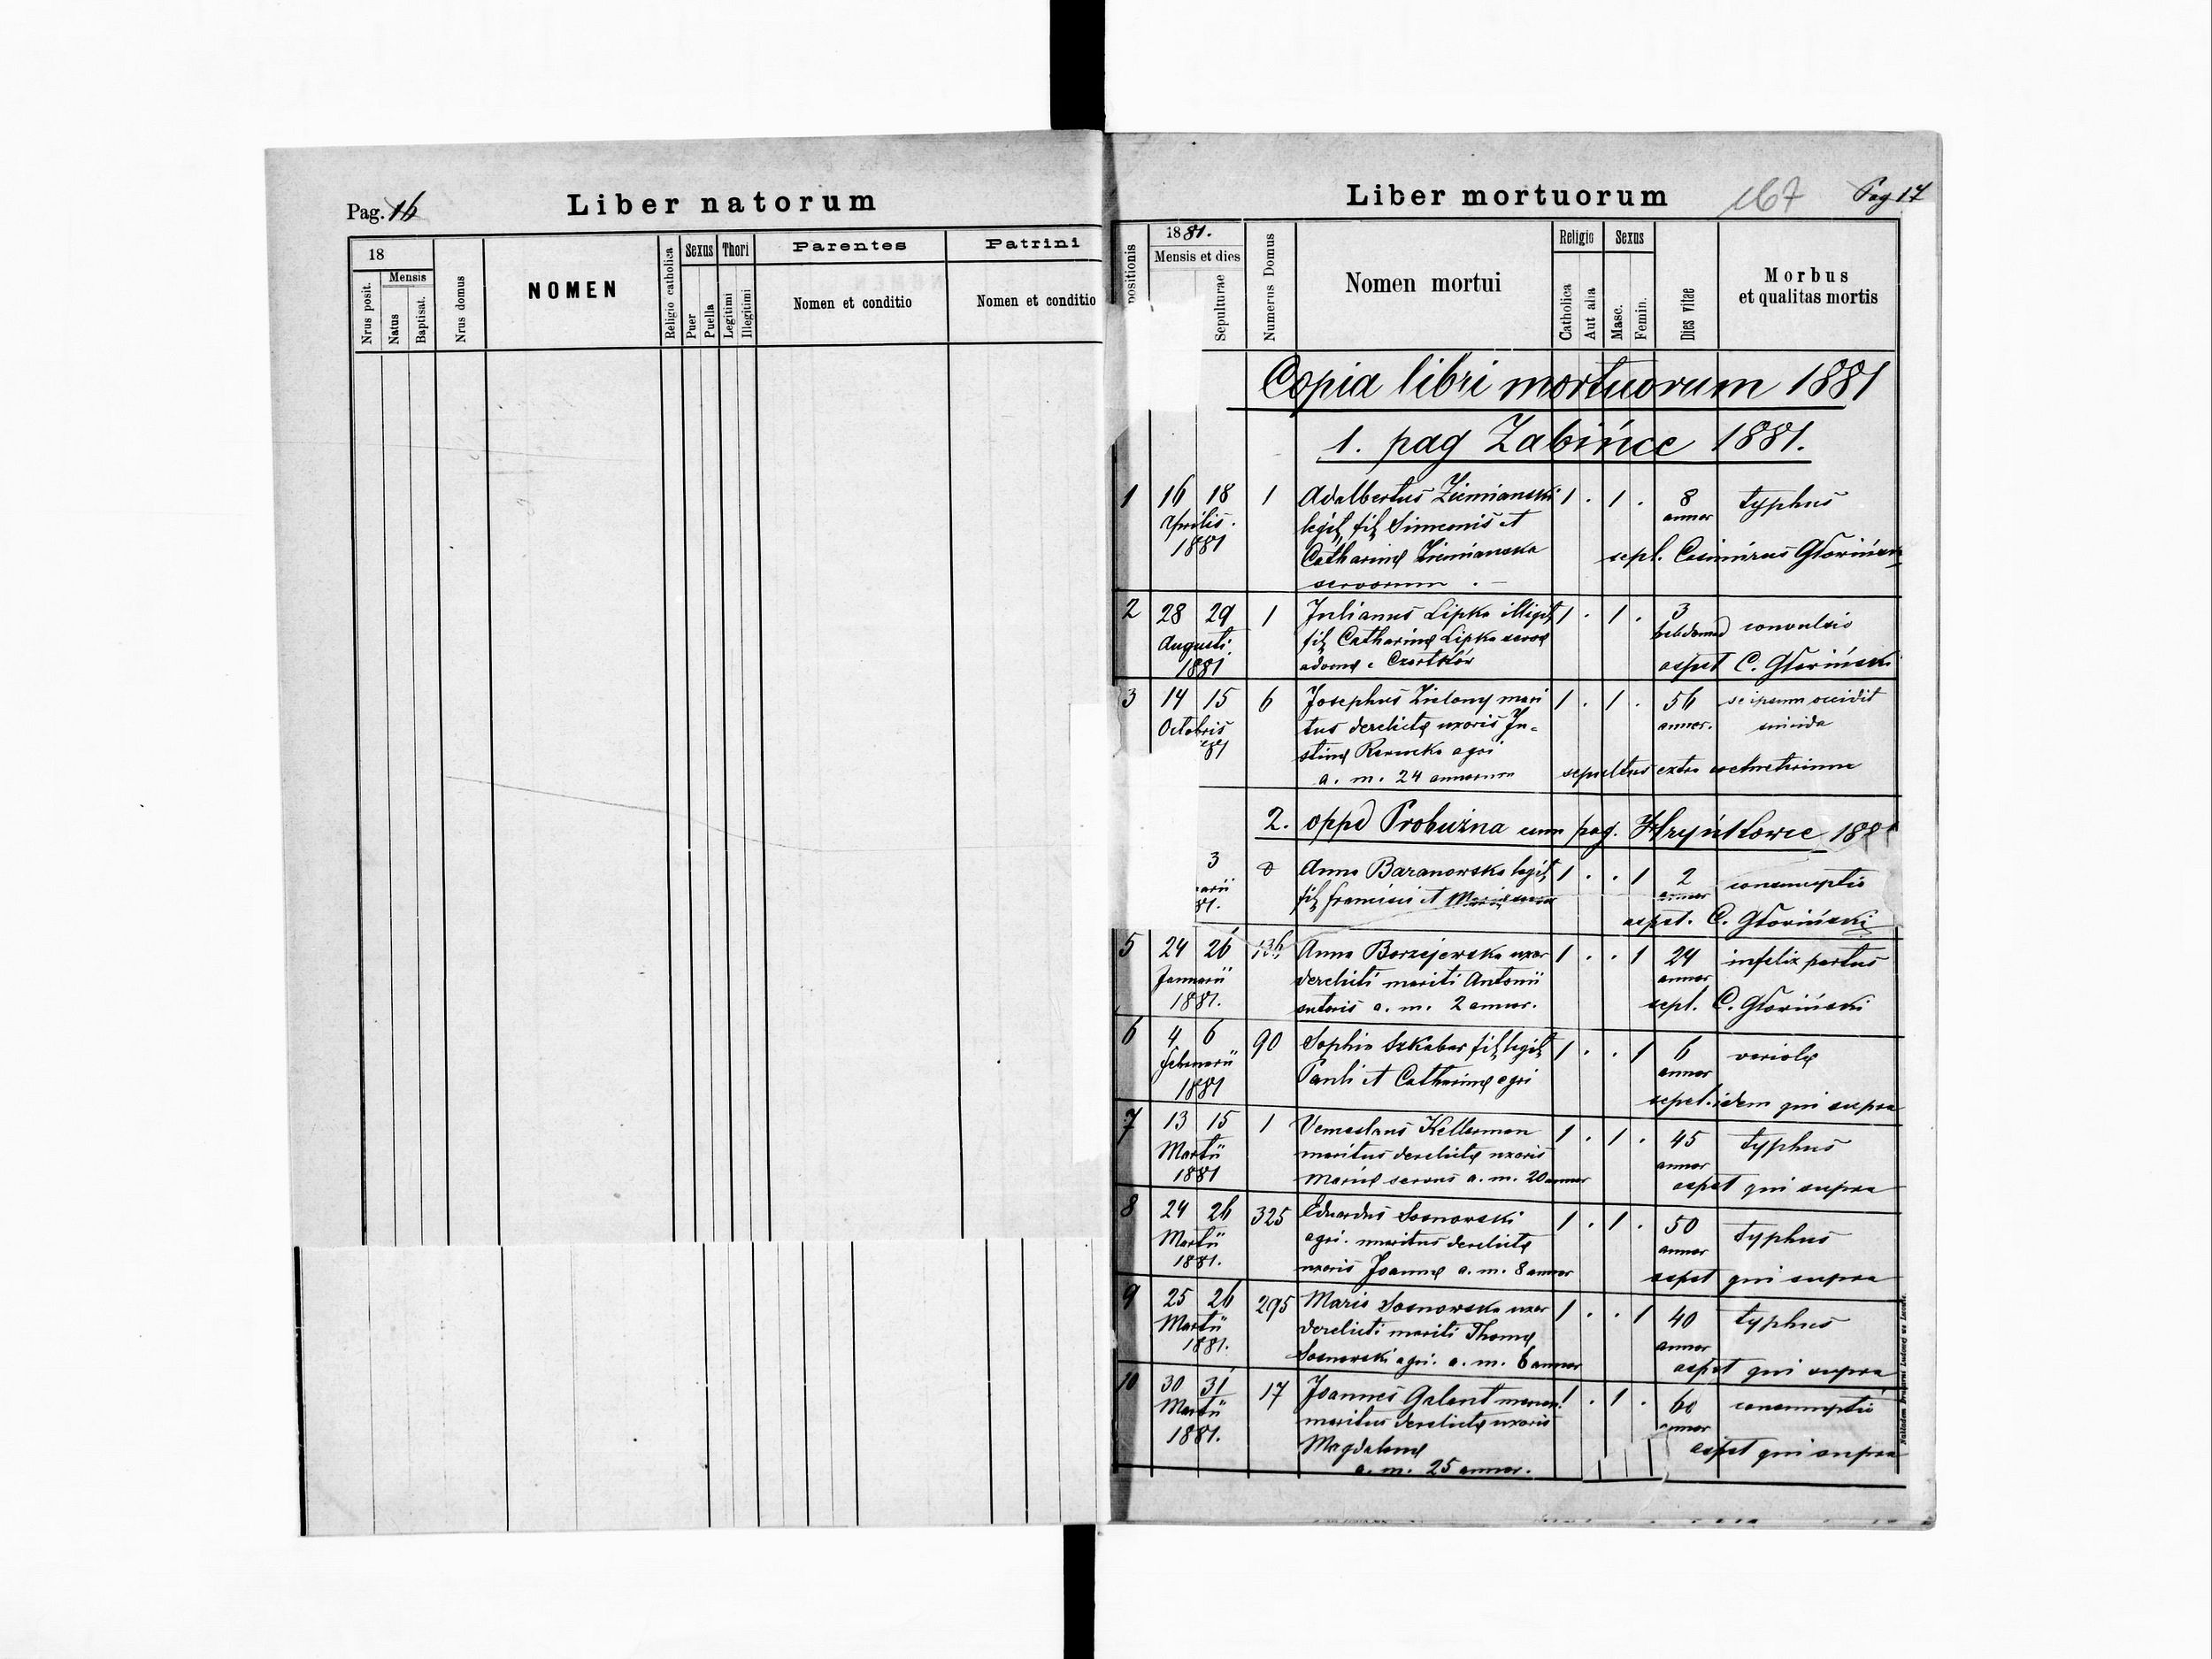 Pag. 16
Liber natorum
18
Mensis
Nrus posit.
Natus
Baptisat.
Nrus domus
NOMEN
Religio catholica
Sexus
Puer
Puella
Thori
Legitimi
Illegitimi
Parentes
Nomen et conditio
Patrini
Nomen et conditio
Liber mortuorum
167
Pag 17
positionis
1881.
Mensis et dies
Sepulturae
Numerus Domus
Nomen mortui
Religio
Catholica
Aut alia
Sexus
Masc.
Femin.
Dies vitae
Morbus
et qualitas mortis
Copia libri mortuorum 1881
1. pag Zabińce 1881.
1 16 18 1 Adalbertus Ziemianski 1 . 1 . 8 typhus
Aprilis. legit fil Simeonis et annor
1881 Catharinę Ziemianska sepl. Casimirus Głowiński
servorum . —
2 28 29 1 Julianus Lipka illegit 1 . 1 . 3 convulsio
Augusti fil Catharinę Lipka servę hebdomad
1881 advenę e Czortków aspst C. Głowiński
3 14 15 6 Josephus Zielony mari 1 . 1 . 56 se ipsum occidit
Octobris tus derelictę uxoris Ju= annor. suicida
stinę agri
a. m. 24 annorum sepultus extra coemeterium
2. oppd Probużna cum pag. Hryńkowce 1881
3 Anna Baranowska legit 1 . . 1 2 consumptio
arii fil Francisci et annor
81. sepst. C. Głowiński
5 24 26 136 Anna Borzejewska uxor 1 . . 1 24 infelix partus
Januarii derelicti mariti Antonii annor
1881. sutoris a. m. 2 annor. sepl. C. Głowiński
6 4 6 90 Sophia Szkabar fil legit 1 . . 1 6 variolę
Februarii Pauli et Catharinę agri annor
1881 sepst. idem qui supra
7 13 15 1 Venceslaus Kellerman 1 . 1 . 45 typhus
Martii maritus derelictę uxoris annor
1881 Marię servus a. m. 20 annor sepst qui supra
8 24 26 325 Eduardus Sosnowski 1 . 1 . 50 typhus
Martii agri. maritus derelictę annor
1881. uxoris Joannę a. m. 8 annor sepst qui supra
9 25 26 295 Maria Sosnowska uxor 1 . . 1 40 typhus
Martii derelicti mariti Thomę annor
1881. Sosnowski agri. a. m. 6 annor sepst qui supra
10 30 31 17 Joannes Galant 1 . 1 . 60 consumptio
Martii maritus derelictę uxoris annor
1881. Magdalenę sepst qui supra
a. m. 25 annor.